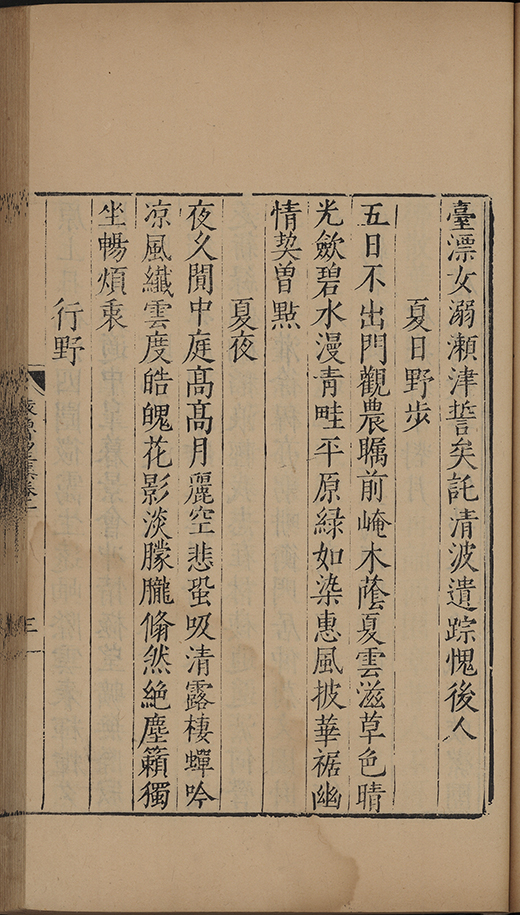 臺漂女溺瀬津誓矣託清波遺踪愧後人
夏日野歩
五日不出門觀農矚前崦木蔭夏雲滋草色晴
光歛碧水漫青畦平原緑如染惠風披華裾幽
情契曽㸃
夏夜
夜久閒中庭髙髙月麗空悲蛩吸清露棲蟬吟
凉風纎雲度皓魄花影淡朦朧翛然絶塵籟獨
坐暢煩衷
行野